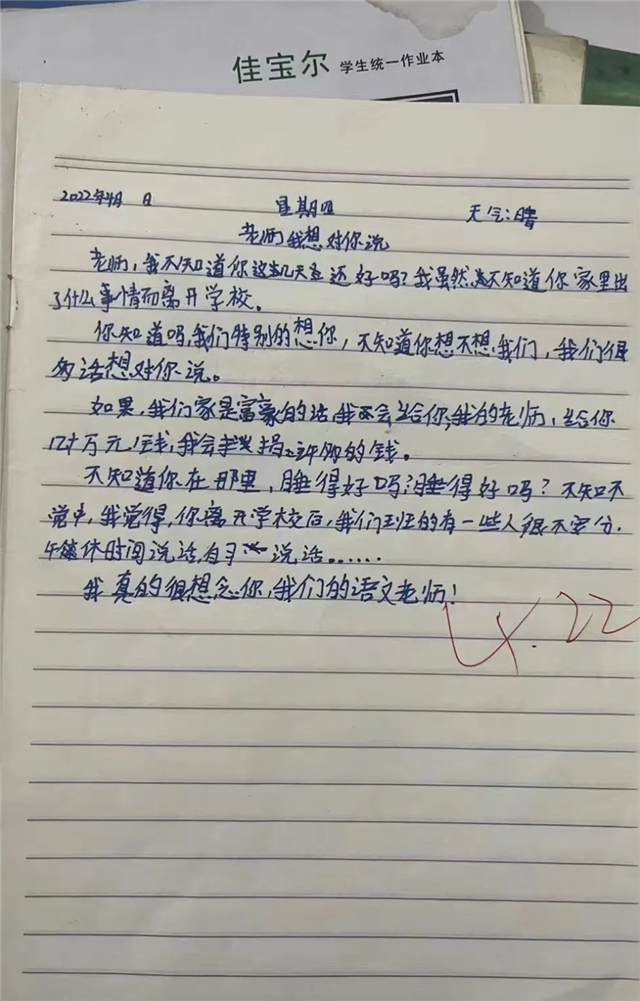 佳宝尔 学生统一作业本
2022年4月 日 星期四 天气:晴
老师我想对你说
老师,我不知道你这几天还好吗?我虽然不知道你家里出
了什么事情而离开学校。
你知道吗,我们特别的想你,不知道你想不想我们,我们很
多话想对你说。
如果,我们家是富豪的话,我会给你,我的老师,给你
亿十万元钱,我会捐许多的钱。
不知道你在那里,睡得好吗?睡得好吗?不知不
觉中,我觉得,你离开学校后,我们班的有一些人很不安分.
午休时间说话,自习说话......
我真的很想念你,我们的语文老师!
4.22